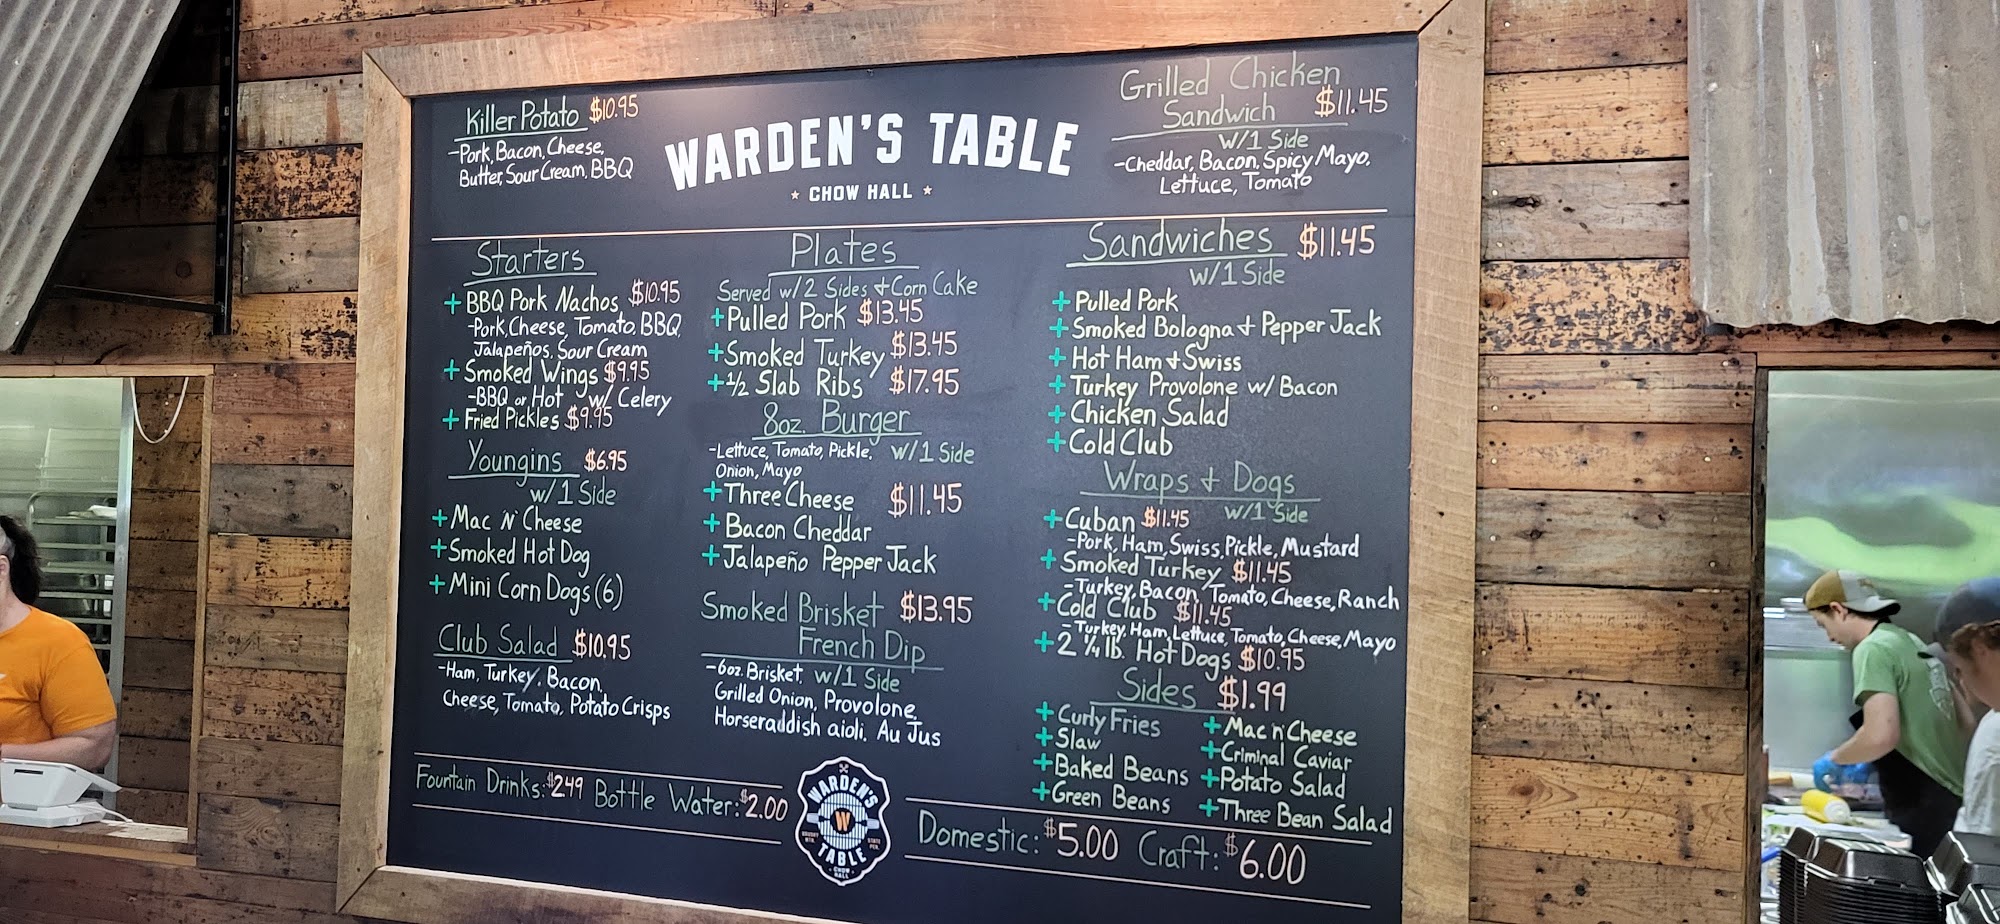 Killer Potato $10.95
-Pork, Bacon, Cheese,
Butter, Sour Cream, BBQ
WARDEN'S TABLE
★ CHOW HALL ★
Grilled Chicken
Sandwich $11.45
w/1 Side
-Cheddar, Bacon, Spicy Mayo,
Lettuce, Tomato
Starters
+ BBQ Pork Nachos $10.95
-Pork, Cheese, Tomato, BBQ,
Jalapeños, Sour Cream
+ Smoked Wings $9.95
-BBQ or Hot w/ Celery
+ Fried Pickles $9.95
Youngins $6.95
w/1 Side
+ Mac N' Cheese
+ Smoked Hot Dog
+ Mini Corn Dogs (6)
Club Salad $10.95
-Ham, Turkey, Bacon,
Cheese, Tomato, Potato Crisps
Plates
Served w/2 Sides + Corn Cake
+ Pulled Pork $13.45
+ Smoked Turkey $13.45
+ 1/2 Slab Ribs $17.95
8oz. Burger
-Lettuce, Tomato, Pickle, w/1 Side
Onion, Mayo
+ Three Cheese $11.45
+ Bacon Cheddar
+ Jalapeño Pepper Jack
Smoked Brisket $13.95
French Dip
-6oz. Brisket, w/1 Side
Grilled Onion, Provolone,
Horseraddish aioli, Au Jus
Sandwiches $11.45
w/1 Side
+ Pulled Pork
+ Smoked Bologna + Pepper Jack
+ Hot Ham + Swiss
+ Turkey Provolone w/ Bacon
+ Chicken Salad
+ Cold Club
Wraps + Dogs
w/1 Side
+ Cuban $11.45
-Pork, Ham, Swiss, Pickle, Mustard
+ Smoked Turkey $11.45
-Turkey, Bacon, Tomato, Cheese, Ranch
+ Cold Club $11.45
-Turkey, Ham, Lettuce, Tomato, Cheese, Mayo
+ 2 1/4 lb. Hot Dogs $10.95
Sides $1.99
+ Curly Fries
+ Slaw
+ Baked Beans
+ Green Beans
+ Mac n' Cheese
+ Criminal Caviar
+ Potato Salad
+ Three Bean Salad
Fountain Drinks: $2.49 Bottle Water: $2.00
WARDEN'S
W
TABLE
CHOW
HALL
Domestic: $5.00 Craft: $6.00